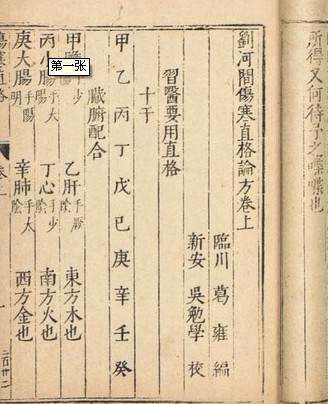 所得又何待予之喋喋也
劉河間傷寒直格論方卷上
臨川 葛雍 編
新安 吳勉學 校
習醫要用直格
十干
甲乙丙丁戊己庚辛壬癸
臟腑配合
甲膽 少 乙肝 足厥陰 東方木也
第一张
丙小腸 手太陽 丁心 手少陰 南方火也
庚大腸 手陽明 辛肺 手太陰 西方金也
傷寒直格 卷上 一 二百廿二